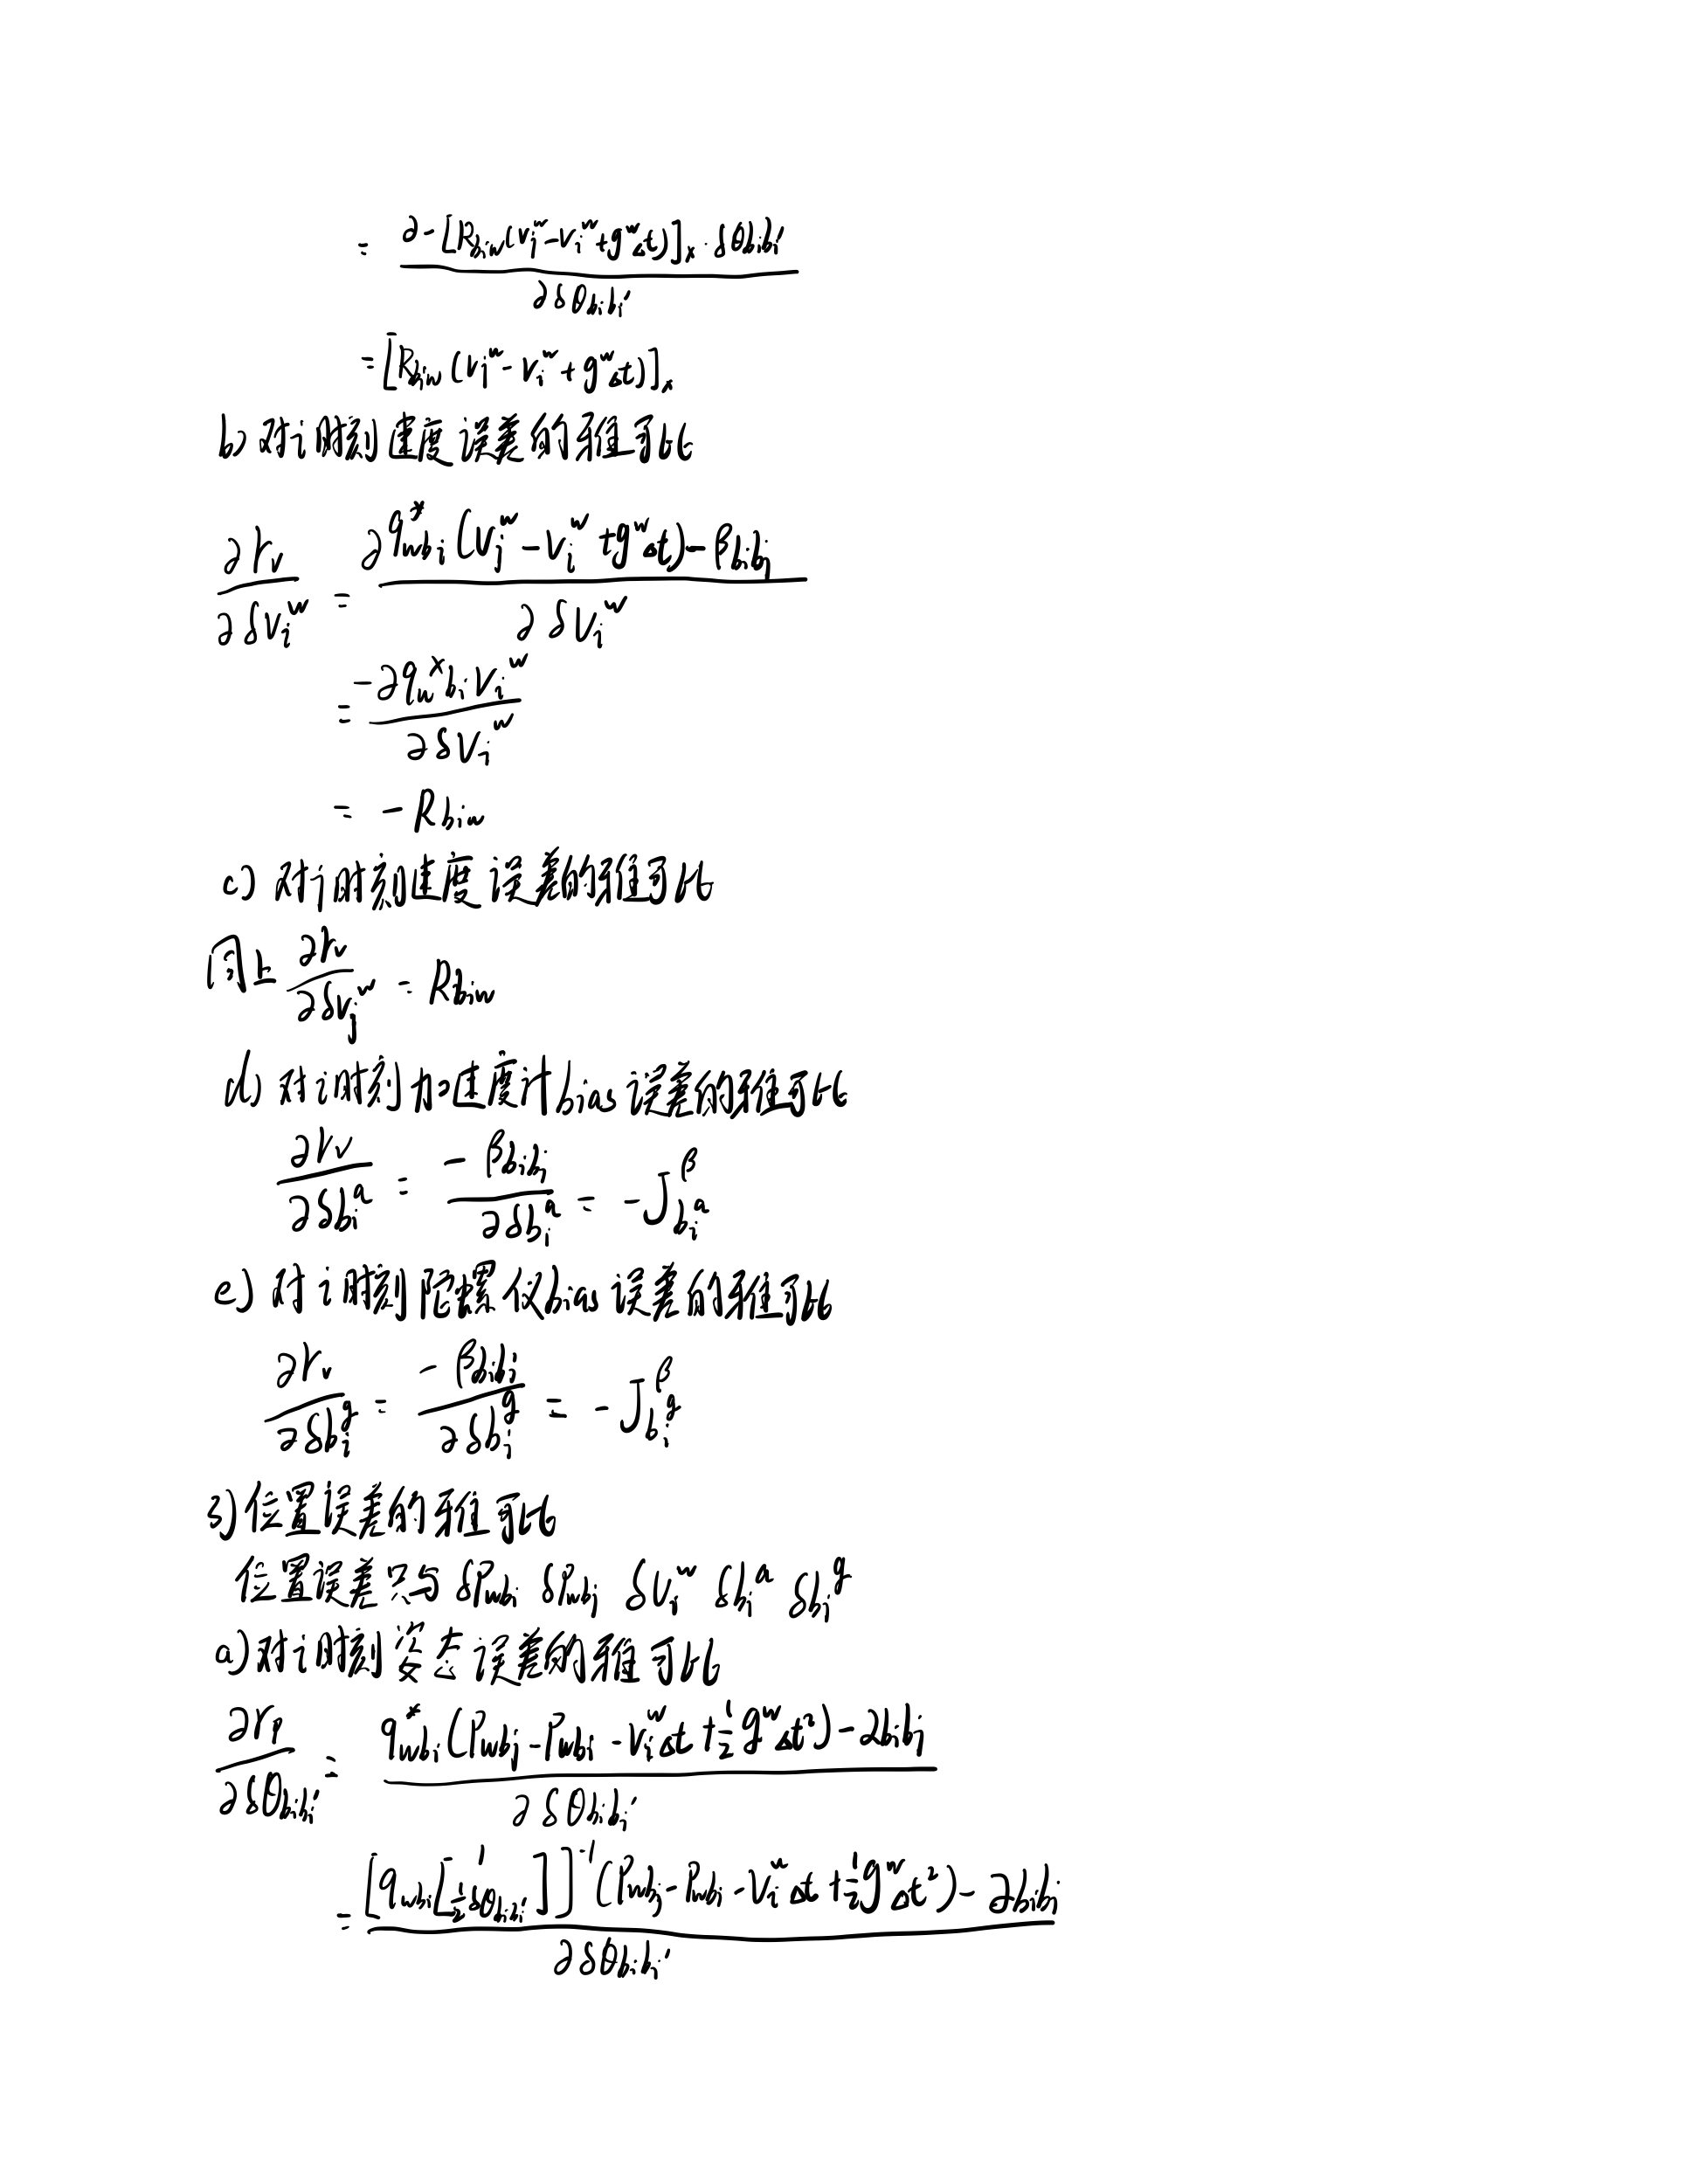 = ∂-[R_{b_i w}(v_j^w - v_i^w + g^w Δt)]_× · δθ_{b_i b_i'} / ∂δθ_{b_i b_i'}
= [R_{b_i w}(v_j^w - v_i^w + g^w Δt)]_×
b) 对i时刻速度误差的雅可比
∂r_v / ∂δv_i^w = ∂q_{wb_i}^*(v_j^w - v_i^w + g^w Δt) - β_{b_i b_j} / ∂δv_i^w
= -∂q_{wb_i}^* v_i^w / ∂δv_i^w
= -R_{b_i w}
c) 对j时刻速度误差的雅可比
同上 ∂r_v / ∂δv_j^w = R_{b_i w}
d) 对i时刻加速度计bias误差的雅可比
∂r_v / ∂δb_i^a = -β_{b_i b_j} / ∂δb_i^a = -J_{b_i^a}^β
e) 对i时刻陀螺仪bias误差的雅可比
∂r_v / ∂δb_i^g = -β_{b_i b_j} / ∂δb_i^g = -J_{b_i^g}^β
3) 位置误差的雅可比
位置误差只与 δP_{wb_i} δP_{wb_j} δv_i^w δb_i^a δb_i^g
a) 对i时刻姿态误差的雅可比
∂r_p / ∂δθ_{b_i b_i'} = q_{wb_i}^*(P_{wb_j} - P_{wb_i} - v_i^w Δt + 1/2 g^w Δt^2) - α_{b_i b_j} / ∂δθ_{b_i b_i'}
= [q_{wb_i}[1 1/2 δθ_{b_i b_i'}]]^{-1}(P_{wb_j} - P_{wb_i} - v_i^w Δt + 1/2 g^w Δt^2) - α_{b_i b_j} / ∂δθ_{b_i b_i'}